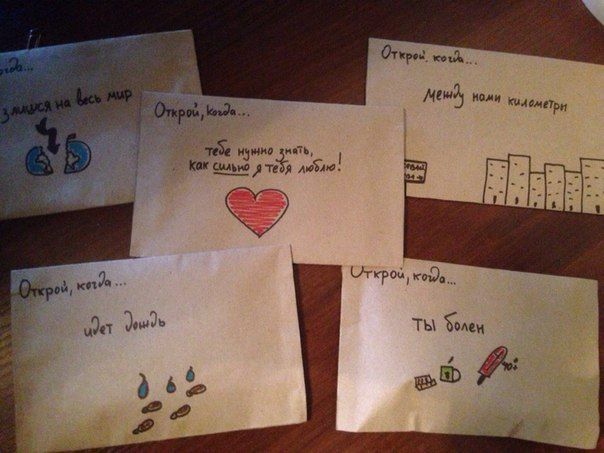 когда...
злишся на весь мир
Открой, когда...
тебе нужно знать,
как сильно я тебя люблю!
Открой, когда...
между нами километры
Открой, когда...
идет дождь
Открой, когда...
ты болен
40°